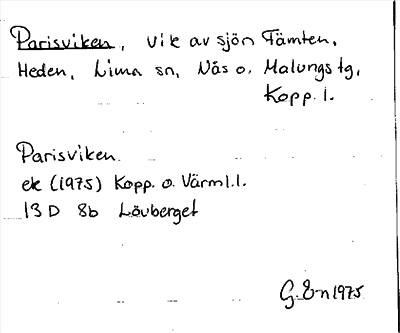 Parisviken, vik av sjön Tämten,
Heden, Lima sn, Nås o. Malungs tg,
Kopp. l.
Parisviken.
ek (1975) Kopp. o. Värml.l.
13 D 8b Lövberget
G. E-n 1975